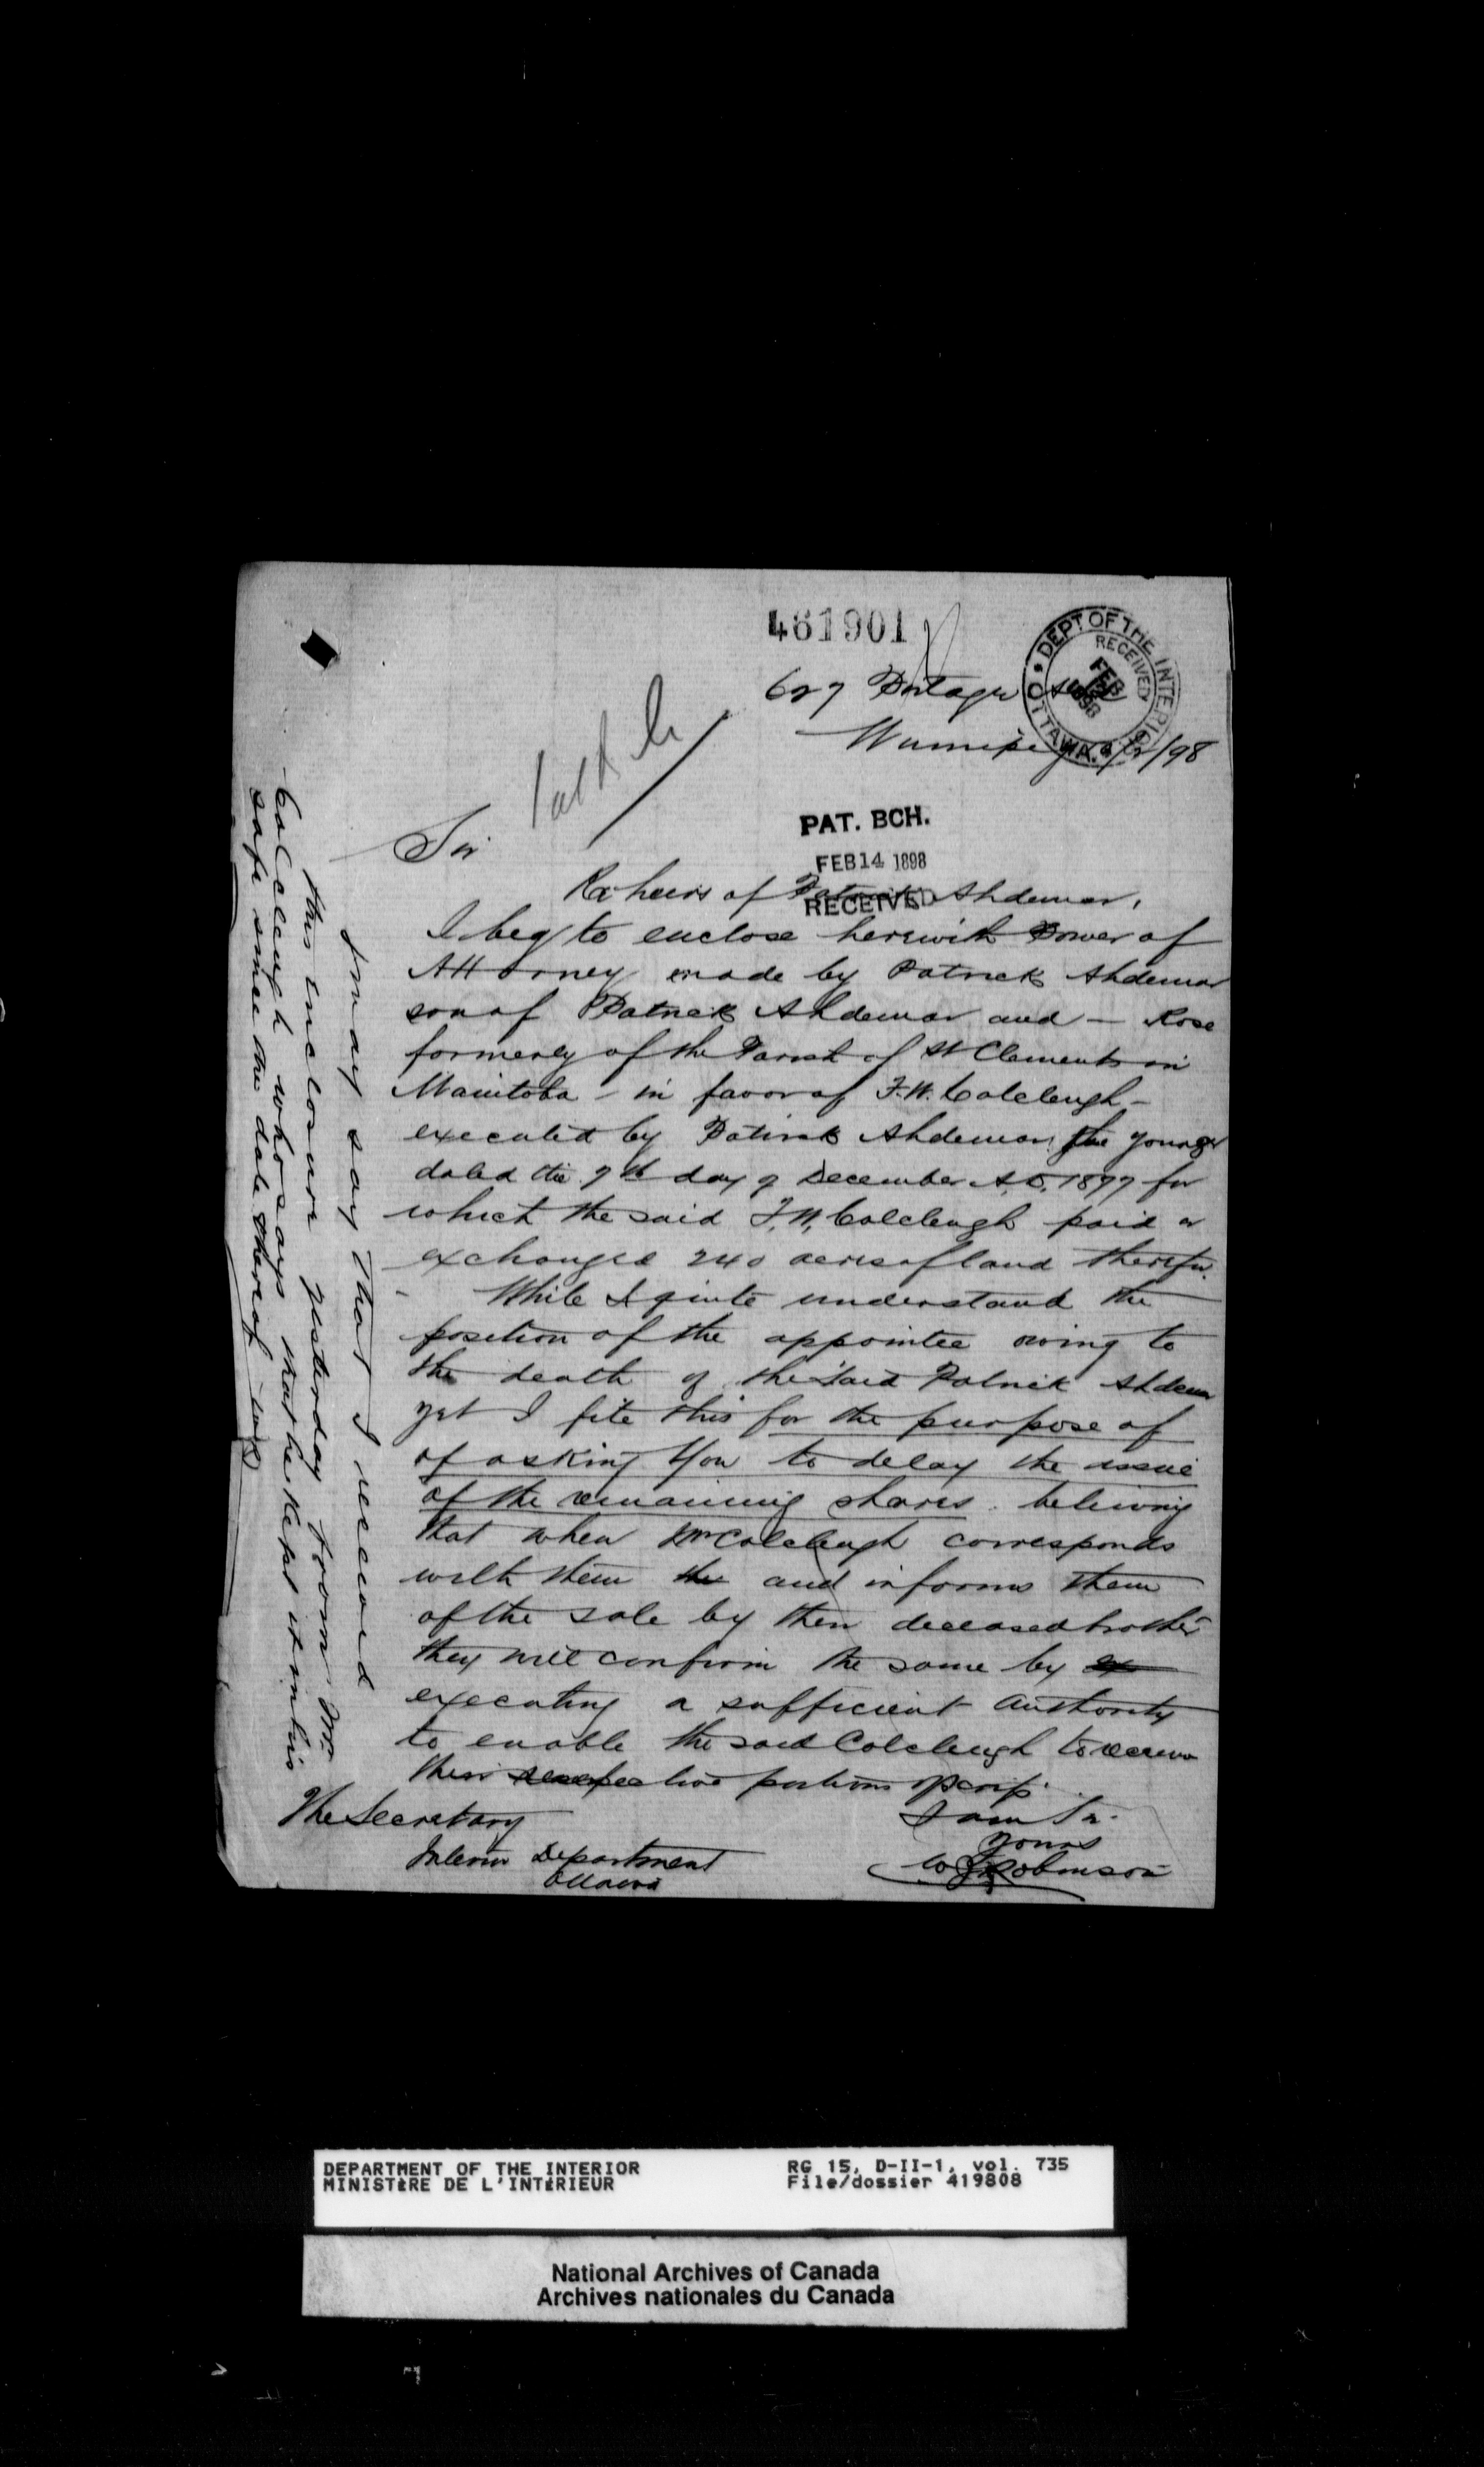 461901
DEPT. OF THE INTERIOR
RECEIVED
FEB
1898
OTTAWA.
627 Portage
Winnipeg /2/98
PAT. BCH.
FEB 14 1898
RECEIVED
Sir
Re heirs of Patrick Ahdemar,
I beg to enclose herewith Power of
Attorney made by Patrick Ahdemar
son of Patrick Ahdemar and — Rose
formerly of the Parish of St Clements in
Manitoba - in favor of F.W. Colcleugh -
executed by Patrick Ahdemar the younger
dated the 7th day of December A.D. 1877 for
which the said F.W. Colcleugh paid or
exchanged 240 acres of land therefor.
While I quite understand the
position of the appointee owing to
the death of the said Patrick Ahdemar
yet I file this for the purpose of
of asking you to delay the issue
of the remaining shares. believing
that when Mr Colcleugh corresponds
with them the and informs them
of the sale by their deceased brother
they will confirm the same by ex
executing a sufficient authority
to enable the said Colcleugh to receive
their respective portions of scrip.
I am Sir.
Yours
W Robinson
The Secretary
Interior Department
Ottawa
I may say that I received
this inclosure yesterday from Mr
Colcleugh who says that he kept it in his
safe since the date thereof
DEPARTMENT OF THE INTERIOR
MINISTÈRE DE L'INTÉRIEUR
RG 15, D-II-1, vol. 735
File/dossier 419808
National Archives of Canada
Archives nationales du Canada